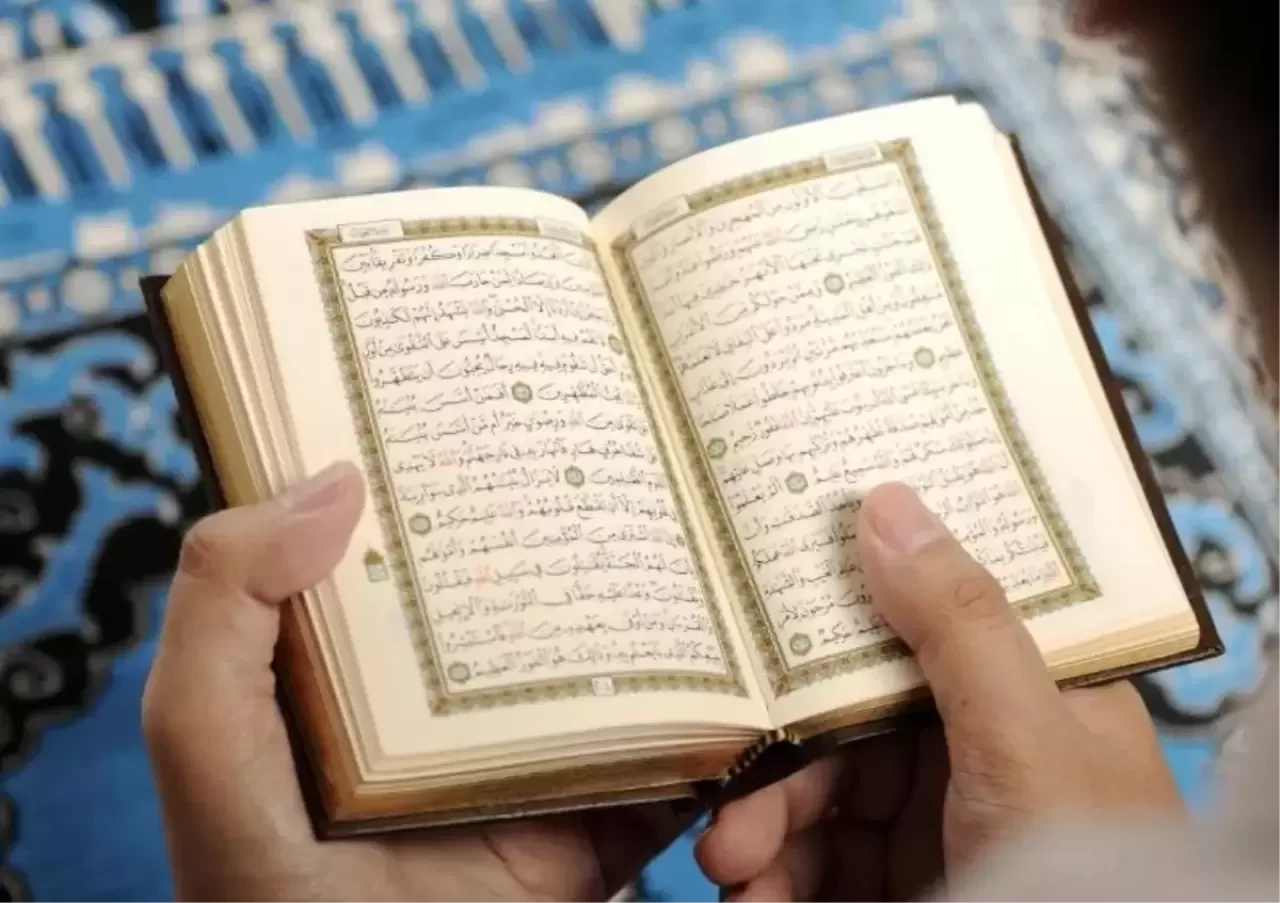 الْأَوَّلُونَ مِنَ الْمُهَٰجِرِينَ وَالْأَنصَارِ
رَّضِيَ اللَّهُ عَنْهُمْ وَرَضُوا عَنْهُ
تَحْتَهَا الْأَنْهَٰرُ خَٰلِدِينَ فِيهَا
الْفَوْزُ الْعَظِيمُ وَمِمَّنْ حَوْلَكُم مِّنَ الْأَعْرَابِ
مُنَٰفِقُونَ وَمِنْ أَهْلِ الْمَدِينَةِ مَرَدُوا عَلَى النِّفَاقِ لَا تَعْلَمُهُمْ
نَحْنُ نَعْلَمُهُمْ سَنُعَذِّبُهُم مَّرَّتَيْنِ ثُمَّ يُرَدُّونَ إِلَىٰ عَذَابٍ
عَظِيمٍ وَءَاخَرُونَ اعْتَرَفُوا بِذُنُوبِهِمْ خَلَطُوا عَمَلًا صَٰلِحًا
وَءَاخَرَ سَيِّئًا عَسَى اللَّهُ أَن يَتُوبَ عَلَيْهِمْ إِنَّ اللَّهَ غَفُورٌ رَّحِيمٌ
خُذْ مِنْ أَمْوَٰلِهِمْ صَدَقَةً تُطَهِّرُهُمْ وَتُزَكِّيهِم بِهَا وَصَلِّ عَلَيْهِمْ
إِنَّ صَلَوٰتَكَ سَكَنٌ لَّهُمْ وَاللَّهُ سَمِيعٌ عَلِيمٌ أَلَمْ يَعْلَمُوا
أَنَّ اللَّهَ هُوَ يَقْبَلُ وَيَأْخُذُ الصَّدَقَٰتِ وَأَنَّ
اللَّهَ هُوَ التَّوَّابُ اعْمَلُوا فَسَيَرَى اللَّهُ عَمَلَكُمْ
وَرَسُولُهُ وَالْمُؤْمِنُونَ عَٰلِمِ الْغَيْبِ وَالشَّهَٰدَةِ
فَيُنَبِّئُكُم بِمَا مُرْجَوْنَ لِأَمْرِ
اللَّهِ إِمَّا يُعَذِّبُهُمْ عَلِيمٌ حَكِيمٌ
اتَّخَذُوا مَسْجِدًا ضِرَارًا وَكُفْرًا وَتَفْرِيقًا بَيْنَ
الْمُؤْمِنِينَ وَإِرْصَادًا لِّمَنْ حَارَبَ اللَّهَ وَرَسُولَهُ مِن قَبْلُ
وَلَيَحْلِفُنَّ إِنْ أَرَدْنَا إِلَّا الْحُسْنَىٰ وَاللَّهُ يَشْهَدُ إِنَّهُمْ لَكَٰذِبُونَ
لَا تَقُمْ فِيهِ أَبَدًا لَّمَسْجِدٌ أُسِّسَ عَلَى التَّقْوَىٰ مِنْ أَوَّلِ
يَوْمٍ أَحَقُّ أَن تَقُومَ فِيهِ فِيهِ رِجَالٌ يُحِبُّونَ أَن يَتَطَهَّرُوا
يُحِبُّ الْمُطَّهِّرِينَ أَفَمَنْ أَسَّسَ بُنْيَٰنَهُ
عَلَىٰ تَقْوَىٰ مِنَ اللَّهِ وَرِضْوَٰنٍ خَيْرٌ أَم مَّنْ أَسَّسَ بُنْيَٰنَهُ
عَلَىٰ شَفَا جُرُفٍ هَارٍ فَانْهَارَ بِهِ فِي نَارِ جَهَنَّمَ وَاللَّهُ لَا يَهْدِي
الْقَوْمَ الظَّٰلِمِينَ لَا يَزَالُ بُنْيَٰنُهُمُ الَّذِي بَنَوْا رِيبَةً
فِي قُلُوبِهِمْ إِلَّا أَن تَقَطَّعَ قُلُوبُهُمْ وَاللَّهُ عَلِيمٌ حَكِيمٌ
إِنَّ اللَّهَ اشْتَرَىٰ مِنَ الْمُؤْمِنِينَ أَنفُسَهُمْ وَأَمْوَٰلَهُم
بِأَنَّ لَهُمُ الْجَنَّةَ يُقَٰتِلُونَ فِي سَبِيلِ اللَّهِ فَيَقْتُلُونَ
وَيُقْتَلُونَ وَعْدًا عَلَيْهِ حَقًّا فِي التَّوْرَىٰةِ وَالْإِنجِيلِ
وَالْقُرْءَانِ وَمَنْ أَوْفَىٰ بِعَهْدِهِ مِنَ اللَّهِ فَاسْتَبْشِرُوا
بِبَيْعِكُمُ الَّذِي بَايَعْتُم بِهِ وَذَٰلِكَ هُوَ الْفَوْزُ الْعَظِيمُ